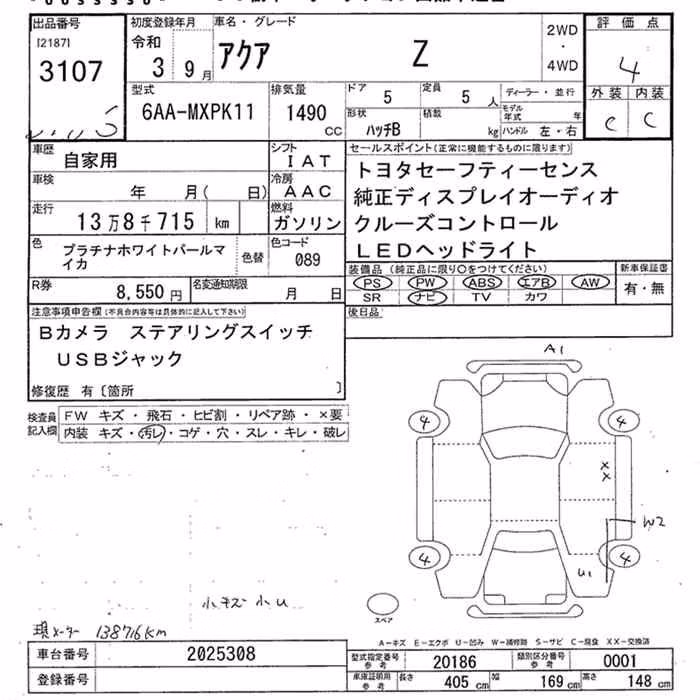 出品番号
[2187]
3107
初度登録年月
令和
3 9月
車名・グレード
アクア Z
2WD
・
4WD
評価点
4
外装 内装
C C
型式
6AA-MXPK11
排気量
1490
CC
ドア
5
定員
5 人
形状
ハッチB
積載
kg
ディーラー・並行
モデル年式 年
ハンドル 左・右
車歴
自家用
シフト
IAT
車検
年 月( 日)
冷房
AAC
走行
13万8千715 km
燃料
ガソリン
色
プラチナホワイトパールマイカ
色替
色コード
089
R券
8,550 円
名変通知期限
月 日
セールスポイント(正常に機能するものに限ります)
トヨタセーフティーセンス
純正ディスプレイオーディオ
クルーズコントロール
LEDヘッドライト
装備品(純正品に限り○をつけてください)
新車保証書
PS PW ABS エアB AW
有・無
SR ナビ TV カワ
後日品
注意事項申告欄(不具合内容等は具体的に記入して下さい)
Bカメラ ステアリングスイッチ
USBジャック
修復歴 有〔箇所 〕
検査員
記入欄
FW キズ・飛石・ヒビ割・リペア跡・×要
内装 キズ・汚レ・コゲ・穴・スレ・キレ・破レ
A1
4 4
XX
W2
4 4
U1
小キズ 小U
スペア
現メーター 138716km
A-キズ E-エクボ U-凹み W-補修跡 S-サビ C-腐食 XX-交換済
車台番号
2025308
登録番号
型式指定番号
参考
20186
類別区分番号
参考
0001
車庫証明用
参考
長さ 405 cm 幅 169 cm 高さ 148 cm